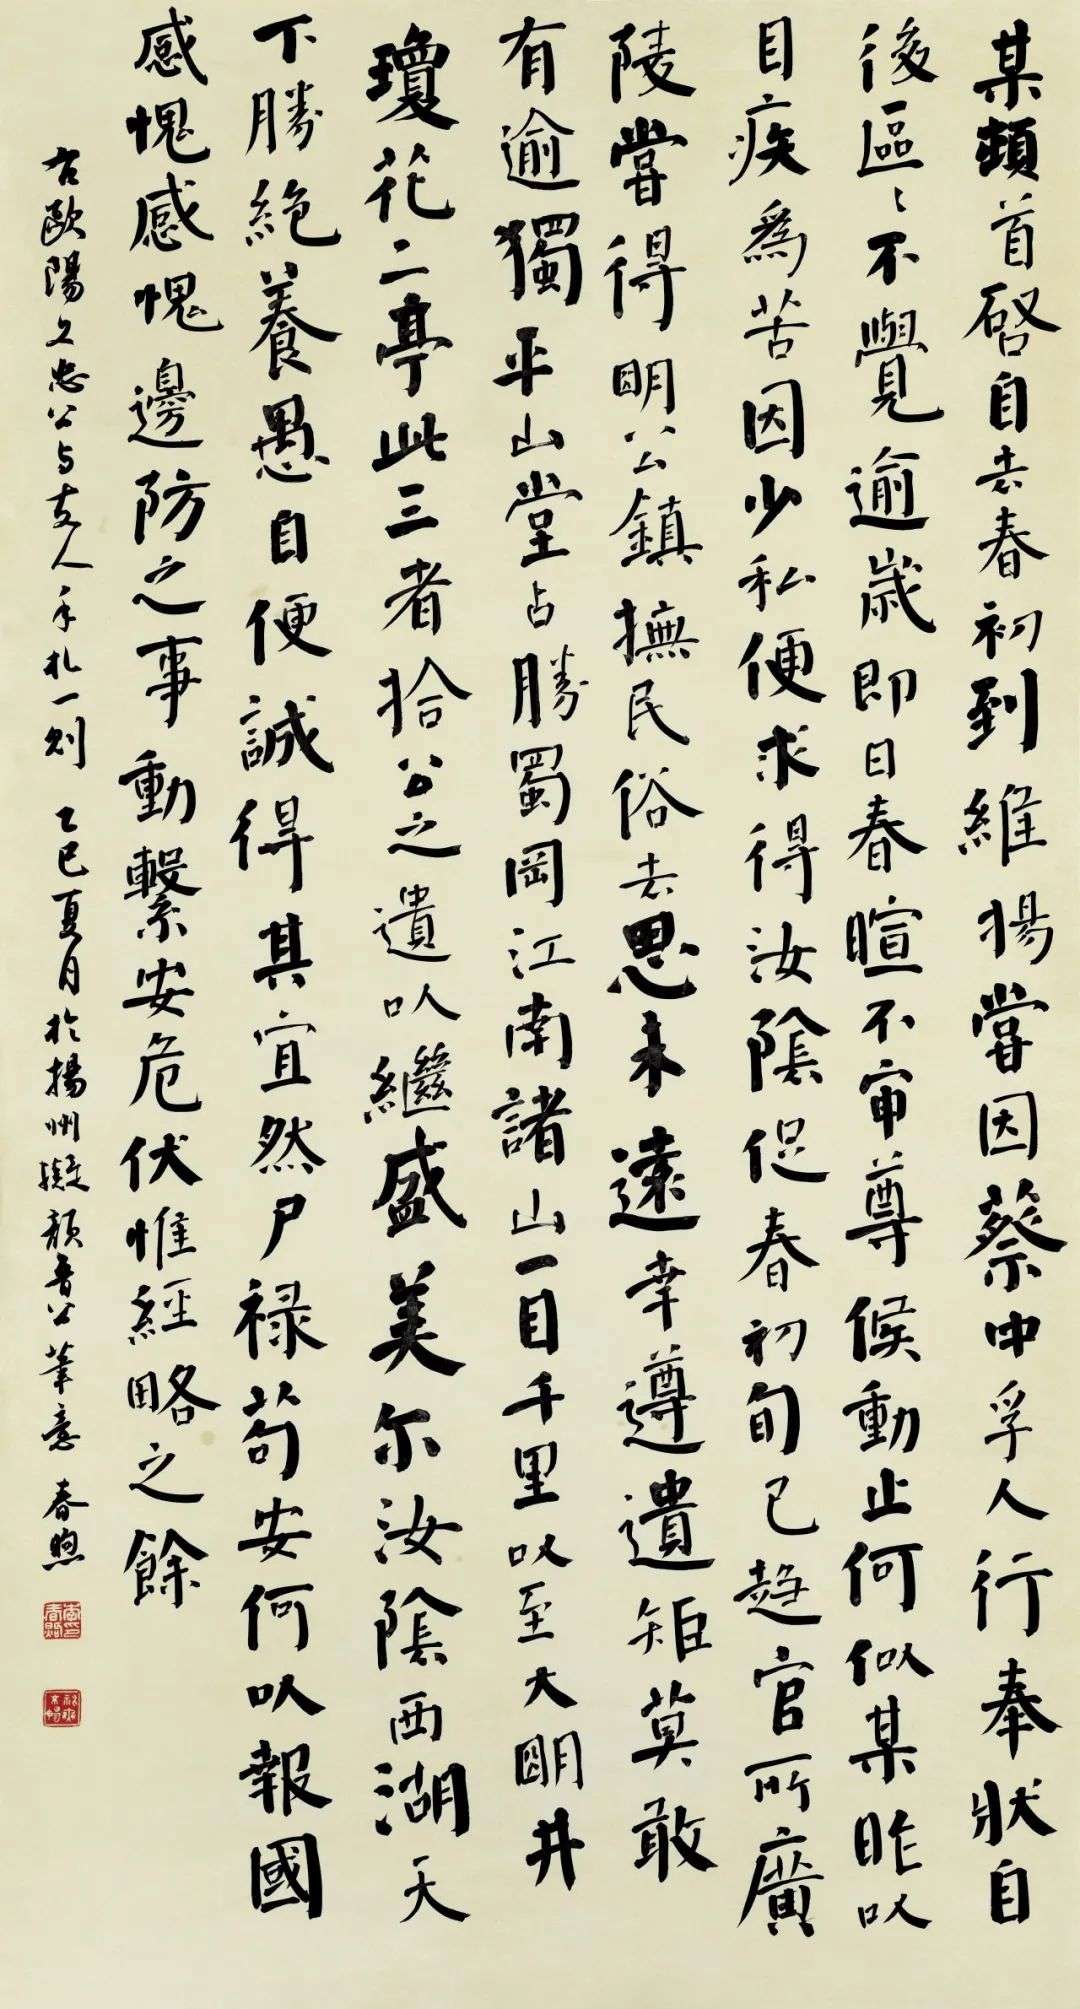 某頓首啓自去春初到維揚嘗因蔡中孚人行奉狀自
後區々不覺逾歲即日春暄不審尊候動止何似某昨以
目疾爲苦因少私便求得汝陰促春初旬已趨官所廣
陵嘗得明公鎮撫民俗去思未遠幸遵遺矩莫敢
有逾獨平山堂占勝蜀岡江南諸山一目千里以至大明井
瓊花二亭此三者拾公之遺以繼盛美尔汝陰西湖天
下勝絕養愚自便誠得其宜然尸禄苟安何以報國
感愧感愧邊防之事動繫安危伏惟經略之餘
右歐陽文忠公与友人手札一則 乙巳夏月於揚州擬顏魯公筆意 春煦